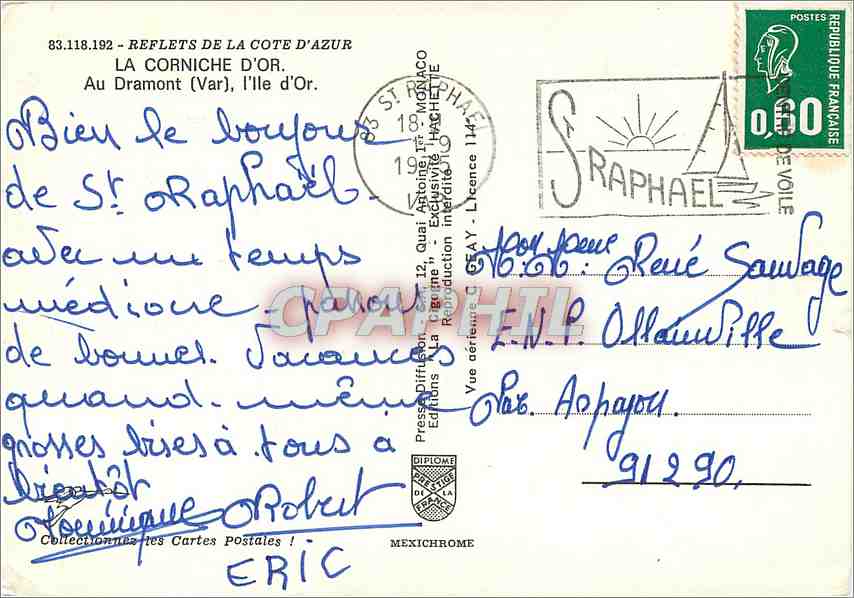 83.118.192 - REFLETS DE LA COTE D'AZUR
LA CORNICHE D'OR.
Au Dramont (Var), l'Ile d'Or.
Bien le bonjour
de St Raphaël -
avec un temps
médiocre - passons
de bonnes vacances
quand - même
grosses bises à tous à
bientôt
Dominique Robert
ERIC
Collectionnez les Cartes Postales !
83 ST RAPHAEL
18-
19
VAR
Presse Diffusion - 12, Quai Antoine 1er - MONACO
Editions "La Cigogne" - Exclusivité HACHETTE
Reproduction interdite
Vue aérienne C. GEAY - Licence 114
DIPLOME
PRESTIGE
DE LA
FRANCE
MEXICHROME
St RAPHAEL
DE VOILE
POSTES
REPUBLIQUE FRANÇAISE
0,60
René Sauvage
E.N.P. Ollainville
Par Arpajon.
91290.
CPAPHIL